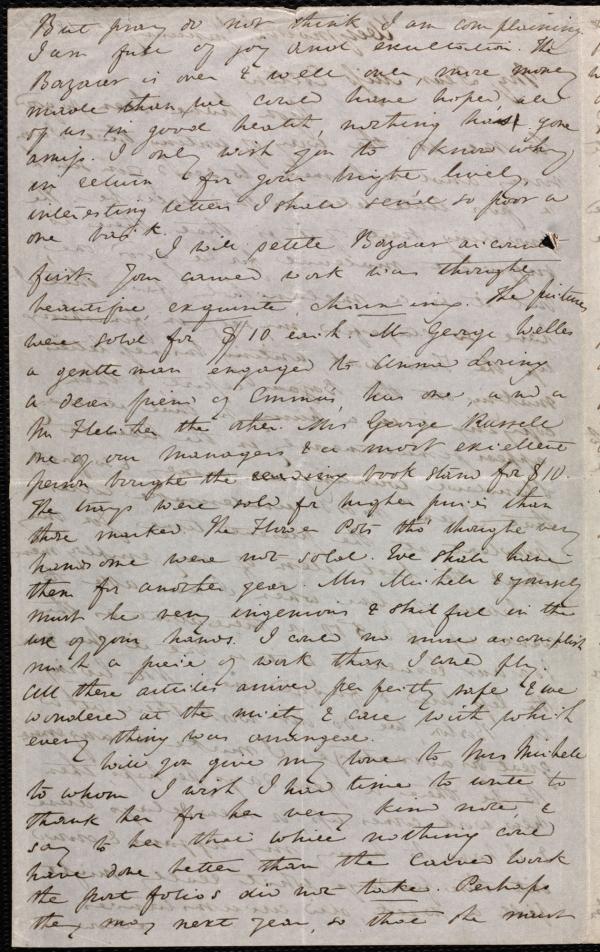 But pray do not think I am complaining
I am full of joy and exultation. The
Bazaar is over & well over, more money
made than we could have hoped, all
of us in good health, nothing has gone
amiss. I only wish you to know why
in return for your bright lively,
interesting letters I shall send so poor a
one back.
I will settle Bazaar accounts
first. Your carved work was thought
beautiful, exquisite, charming. The pictures
were sold for $10 each. Mr George Welles
a gentleman engaged to Anna Loring
a dear friend of Emma's, has one, and a
Mr Fletcher the other. Mrs George Russell
one of our managers & a most excellent
person bought the reading book stand for $10.
The trays were sold for higher prices than
those marked. The Flower Pots tho' thought very
handsome were not sold. We shall have
them for another year. Mrs Michell & yourself
must be very ingenious & skilful in the
use of your hands. I could no more accomplish
such a piece of work than I could fly.
All these articles arrived perfectly safe & we
wondered at the nicety & care with which
every thing was arranged.
Will you give my love to Mrs Michell
to whom I wish I had time to write to
thank her for her very kind note, &
say to her that while nothing could
have done better than the carved work
the port folios did not take. Perhaps
they may next year, so that she must